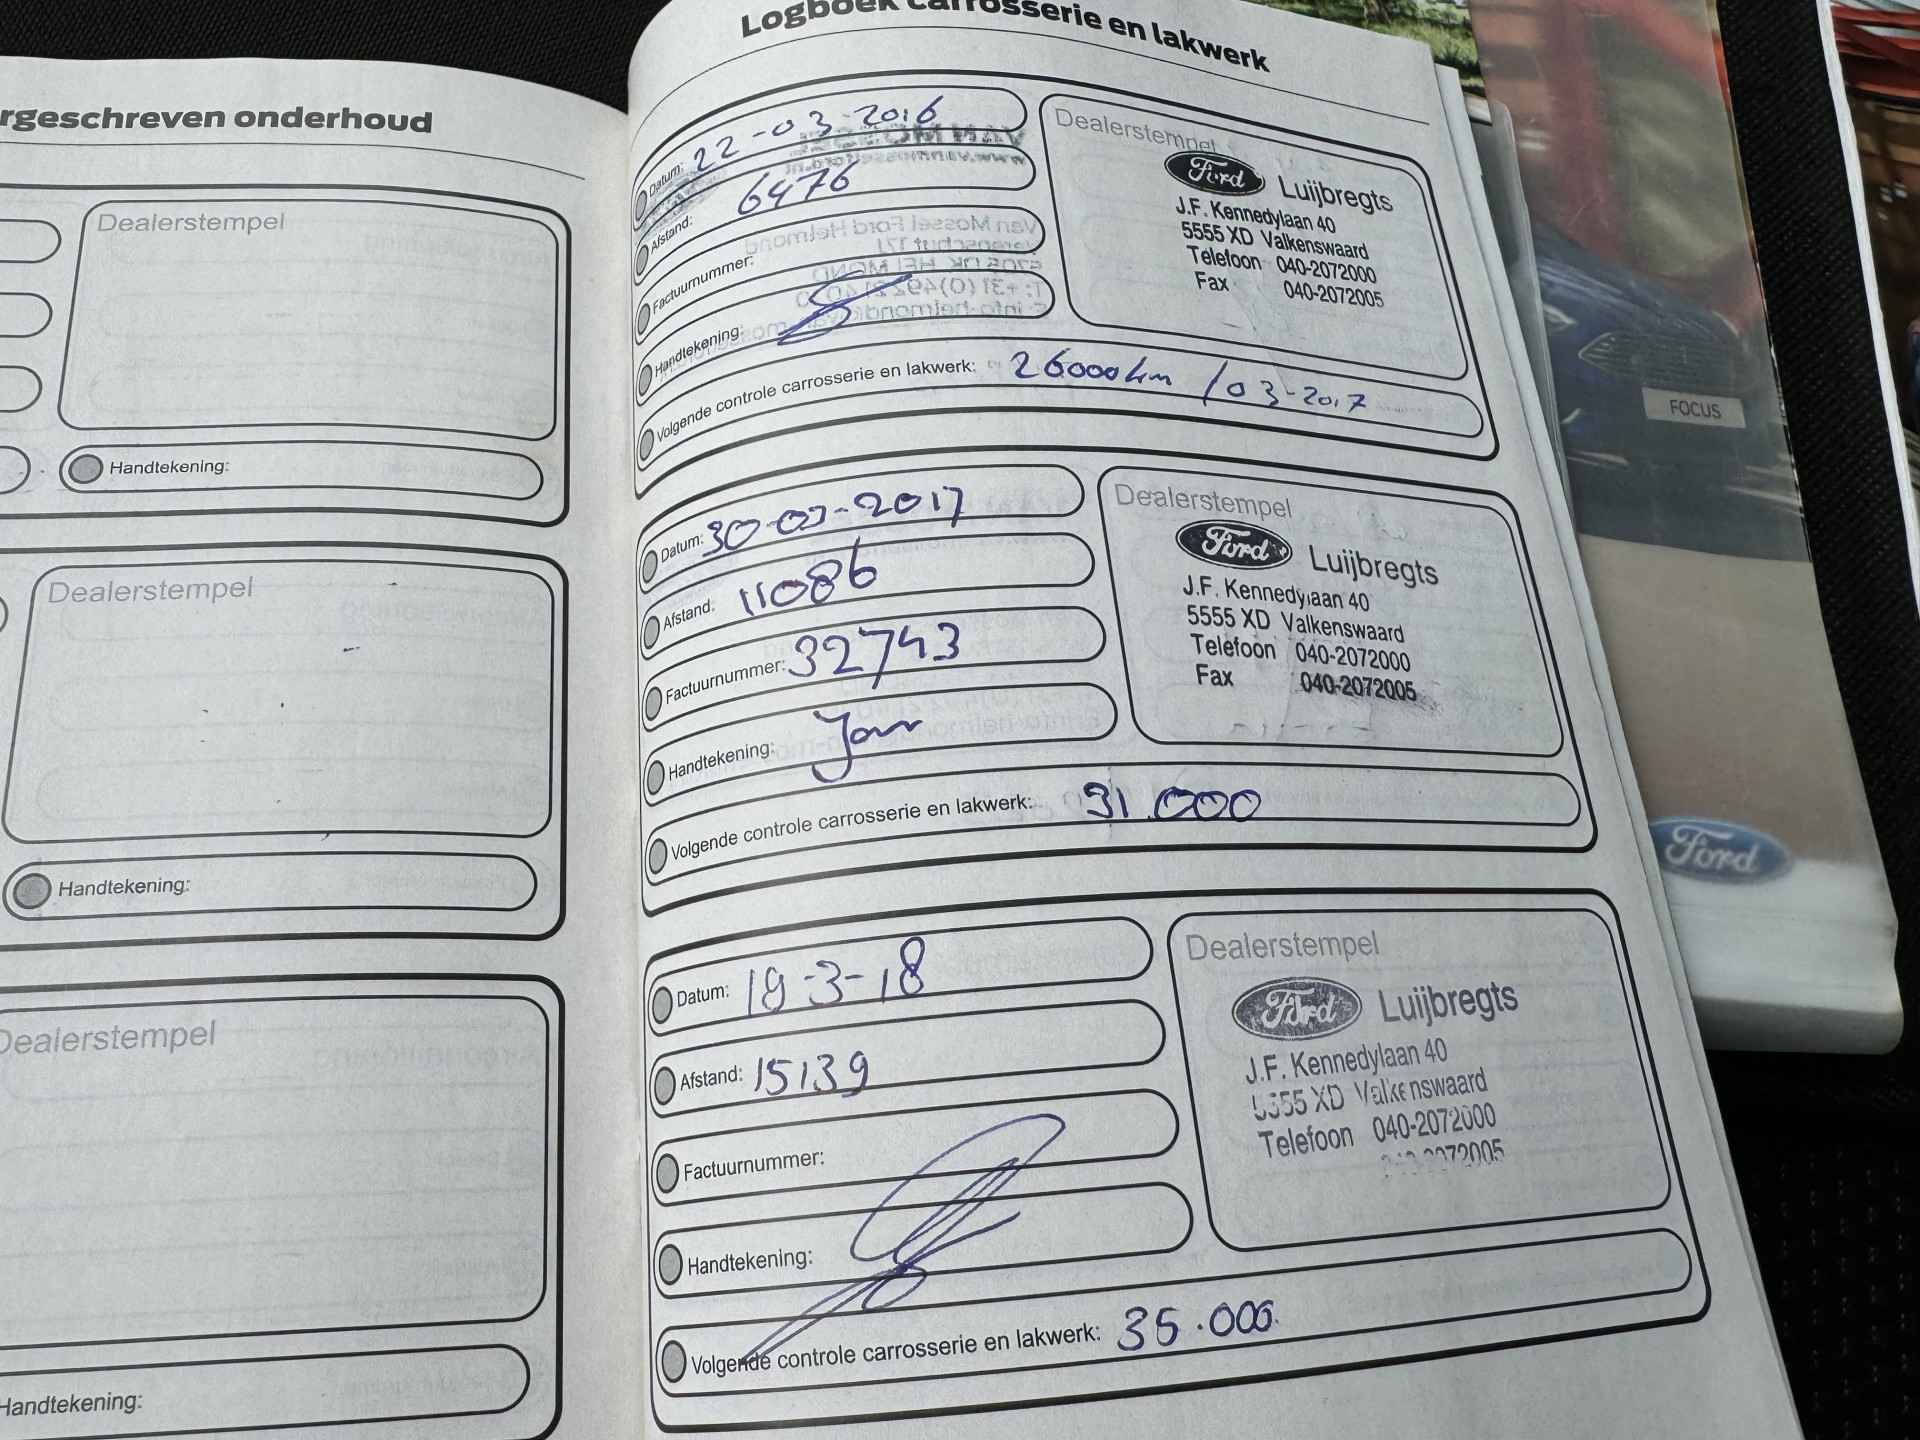 rgeschreven onderhoud
Dealerstempel
Handtekening:
Dealerstempel
Handtekening:
Dealerstempel
Handtekening:
Logboek carrosserie en lakwerk
Datum: 22-03-2016
Afstand: 6476
Factuurnummer:
Handtekening:
Volgende controle carrosserie en lakwerk: 26000km / 03-2017
Dealerstempel
Ford Luijbregts
J.F. Kennedylaan 40
5555 XD Valkenswaard
Telefoon 040-2072000
Fax 040-2072005
Datum: 30-03-2017
Afstand: 11086
Factuurnummer: 32743
Handtekening:
Volgende controle carrosserie en lakwerk: 31.000
Dealerstempel
Ford Luijbregts
J.F. Kennedylaan 40
5555 XD Valkenswaard
Telefoon 040-2072000
Fax 040-2072005
Datum: 19-3-18
Afstand: 15139
Factuurnummer:
Handtekening:
Volgende controle carrosserie en lakwerk: 35.000
Dealerstempel
Ford Luijbregts
J.F. Kennedylaan 40
5555 XD Valkenswaard
Telefoon 040-2072000
040-2072005
FOCUS
Ford